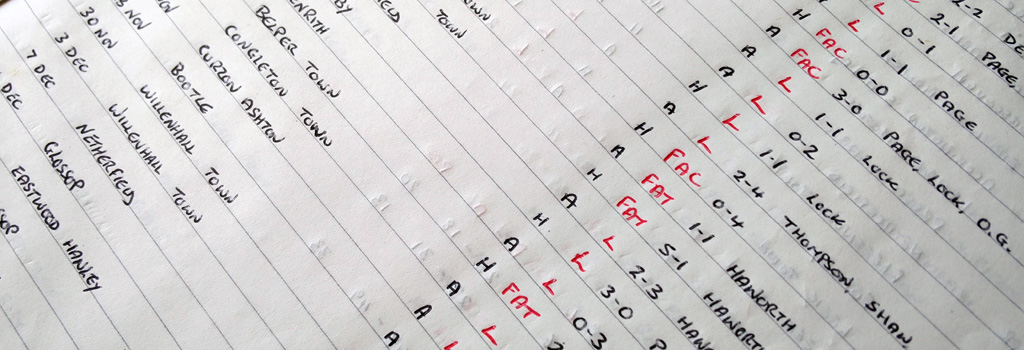 TOWN
TOWN
PENRITH
BELPER TOWN
CONGLETON TOWN
CURZON ASHTON
3 NOV BOOTLE
30 NOV WILLENHALL TOWN
3 DEC WILLENHALL TOWN
7 DEC NETHERFIELD
DEC GLOSSOP
EASTWOOD HANLEY
2-2 DE
L 2-1 PAGE
L 0-1
1-1 PAGE
H FAC 0-0
A FAC 3-0 PAGE, LOCK, O.G.
A L 1-1 LOCK
A L 0-2
H L 1-1 LOCK
A L 2-4 THOMPSON, SHAW
H FAC 0-4
A FAT 1-1 HAWORTH
H FAT 5-1 HAWORTH
A L 2-3 HAW
H L 3-0 P
A L 0-3
H FAT
A L
A L
A